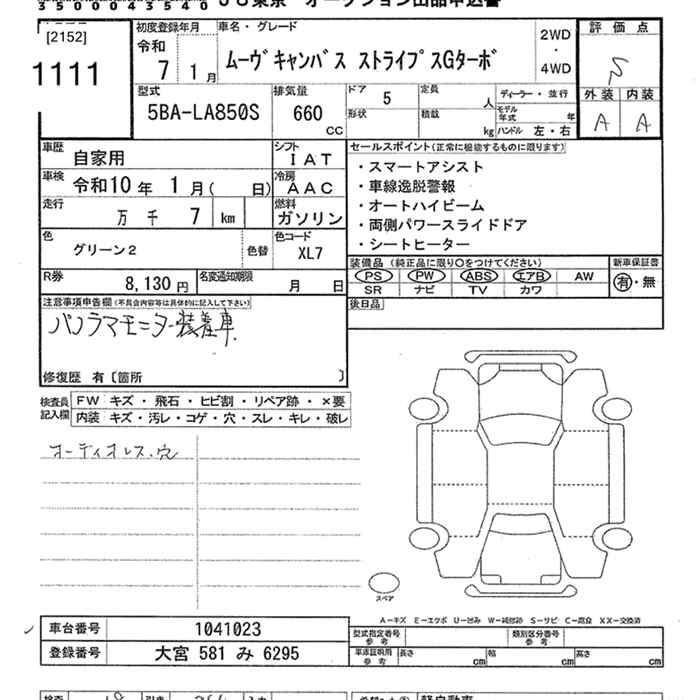 35000435 40
JU東京 オークション出品申込書
[2152]
1111
初度登録年月
令和
7 1月
車名・グレード
ムーヴキャンバス ストライプスGターボ
2WD
・
4WD
評価点
S
外装 内装
A A
型式
5BA-LA850S
排気量
660
CC
ドア 5
形状
定員 人
積載 kg
ディーラー・並行
モデル年式 年
ハンドル 左・右
車歴
自家用
シフト
IAT
車検
令和10年 1月( 日)
冷房
AAC
走行
万 千 7 km
燃料
ガソリン
色
グリーン2
色替
色コード
XL7
R券
8,130円
名変通知期限
月 日
セールスポイント(正常に機能するものに限ります)
・スマートアシスト
・車線逸脱警報
・オートハイビーム
・両側パワースライドドア
・シートヒーター
装備品(純正品に限り○をつけてください)
PS PW ABS エアB AW
SR ナビ TV カワ
新車保証書
有・無
後日品
注意事項申告欄(不具合内容等は具体的に記入して下さい)
パノラマモニター装着車
修復歴 有〔箇所 〕
検査員記入欄
FW キズ・飛石・ヒビ割・リペア跡・×要
内装 キズ・汚レ・コゲ・穴・スレ・キレ・破レ
オーディオレス・穴
スペア
A−キズ E−エクボ U−凹み W−補修跡 S−サビ C−腐食 XX−交換済
車台番号 1041023
登録番号 大宮 581 み 6295
型式指定番号
参考
類別区分番号
参考
車庫証明用
参考
長さ cm 幅 cm 高さ cm